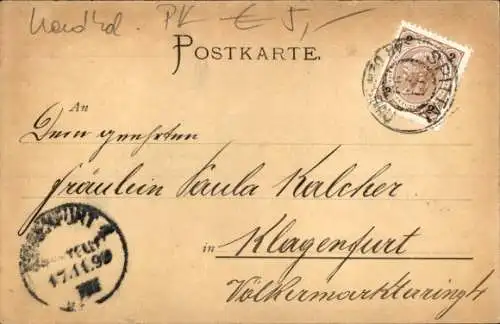 PK € 5,-
POSTKARTE.
SPITTAL
An
Dem geehrten
Fräulein Paula Kalcher
in Klagenfurt
Völkermarkterring
KLAGENFURT
17.11.99